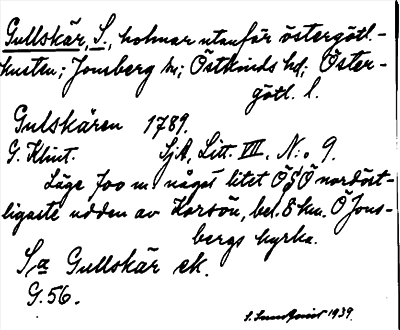 Gullskär, S., holmar utanför östergötl.-
kusten; Jonsberg sn; Östkinds hd; Öster-
götl. l.
Gulskären 1789.
G. Klint. SjA, Litt. III. No 9.
Läge 700 m. något litet ÖSÖ nordöst-
ligaste udden av Korsön, bel. 8 km. Ö Jons-
bergs kyrka.
Sa Gullskär ek.
G. 56.
1939